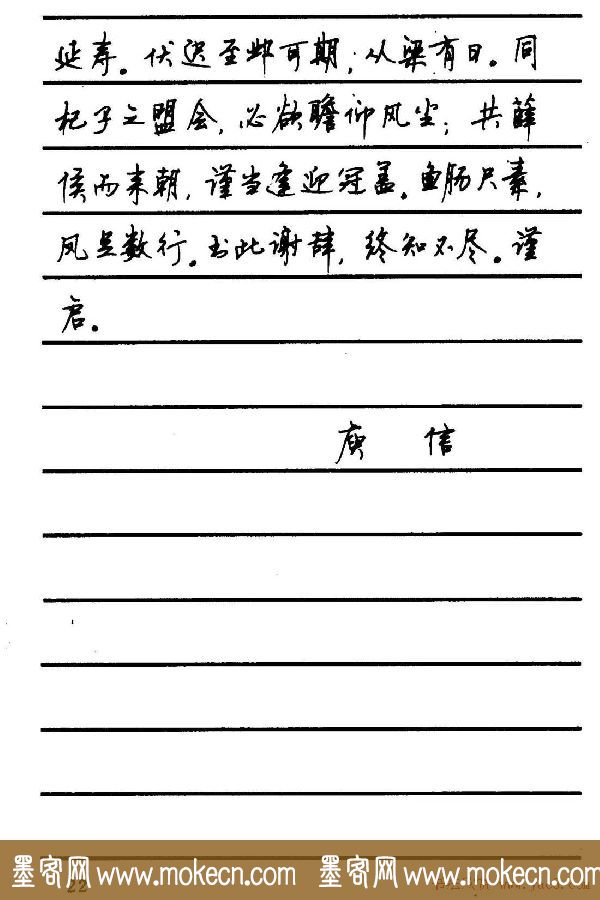 延寿。伏迟至邺可期，从梁有日。同
杞子之盟会，必欲瞻仰风尘；共薛
侯而来朝，谨当逢迎冠盖。鱼肠尺素，
凤足数行。书此谢辞，终知不尽。谨
启。
庾 信
墨客网 www.mokecn.com 墨客网 www.mokecn.com
22